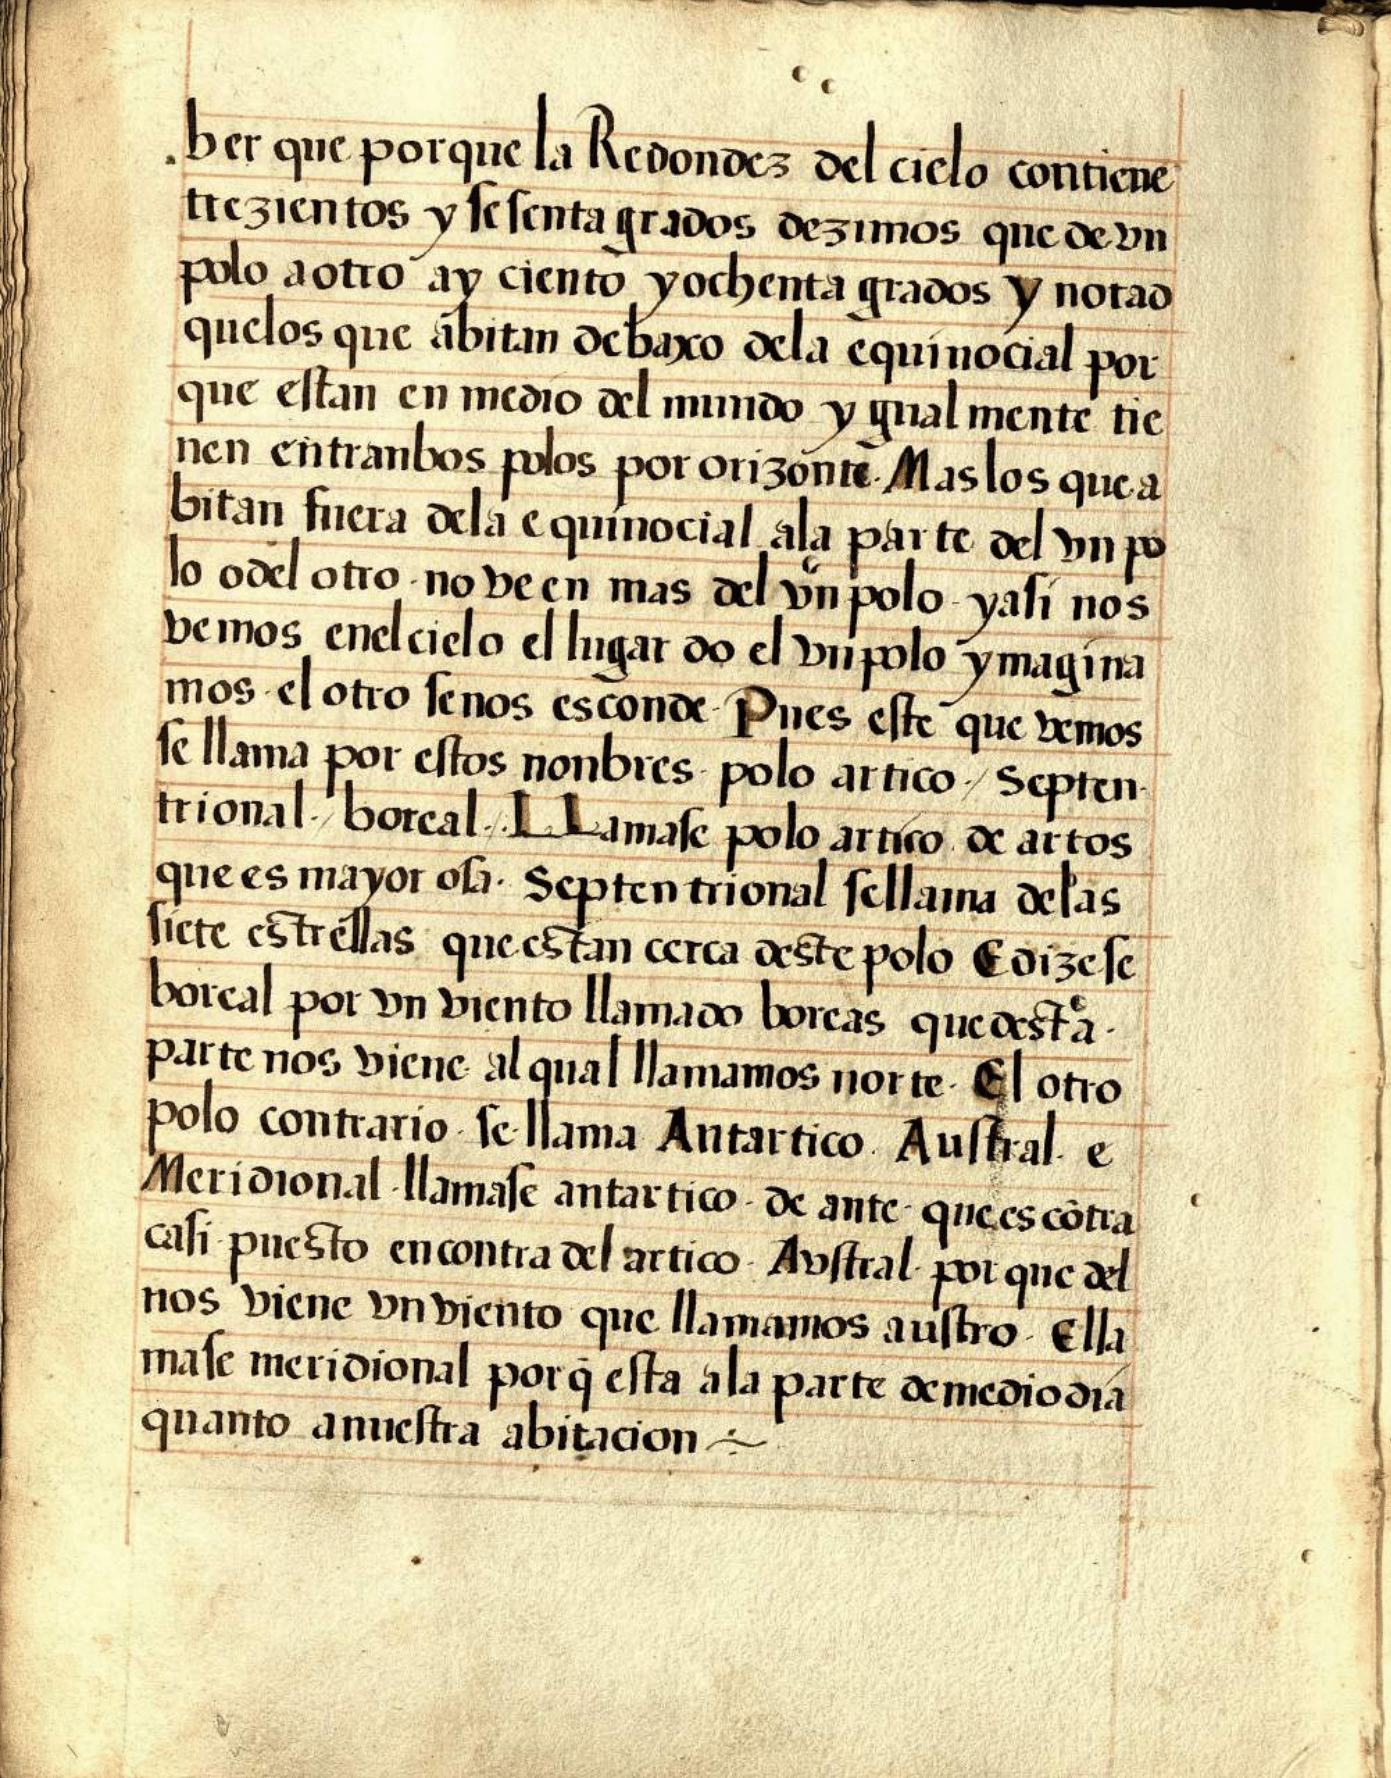 ber que porque la Redondez del cielo contiene
trezientos y sesenta grados dezimos que de vn
polo a otro ay ciento y ochenta grados y notad
quelos que abitan debaxo dela equinocial por
que estan en medio del mundo y gual mente tie
nen entranbos polos por orizonte. Mas los que a
bitan fuera dela equinocial ala parte del vn po
lo o del otro. no veen mas del vn polo. y asi nos
vemos enel cielo el lugar do el vn polo ymagina
mos. el otro senos esconde. Pues este que vemos
se llama por estos nonbres. polo artico./ Septen
trional./ boreal./. LLamase polo artico de artos
que es mayor osa. Septentrional sellama delas
siete estrellas que estan cerca deste polo Edizese
boreal por vn viento llamado boreas que desta.
parte nos viene al qual llamamos norte. El otro
polo contrario. se llama Antartico. Austral. e
Meridional. llamase antartico. de ante. que es cōtra
casi puesto en contra del artico. Avstral. porque del
nos viene vn viento que llamamos austro. Ella
mase meridional porq̄ esta ala parte de medio dia
quanto a nuestra abitacion ~